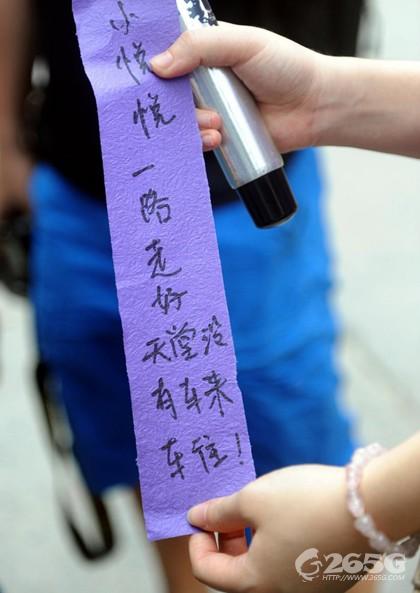 小悦悦
一路走好
天堂没
有车来
车往！
265G
HTTP://WWW.265G.COM